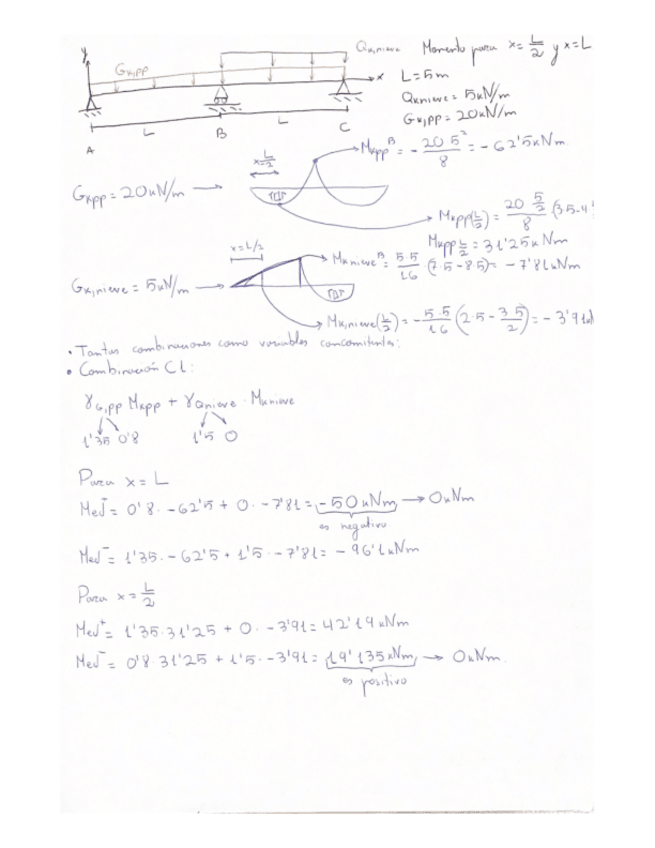 y
Qk,nieve
Momento para x = L/2 y x = L
Gk,pp
x
L = 5m
Qk,nieve = 5kN/m
Gk,pp = 20kN/m
L
L
A
B
C
x = L/2
Mkpp^B = - 20·5²/8 = - 62'5kNm
Gkpp = 20kN/m
Mkpp(L/2) = 20·5/2 / 8 (3·5-4
Mkpp L/2 = 31'25kNm
x = L/2
Mknieve^B = 5·5/16 (7·5-8·5) = - 7'81kNm
Gk,nieve = 5kN/m
Mk,nieve(L/2) = - 5·5/16 (2·5 - 3·5/2) = - 3'91k
• Tantas combinaciones como variables concomitantes:
• Combinación C1:
γG,pp Mkpp + γQnieve · Mknieve
1'35 0'8 1'5 0
Para x = L
Med⁺ = 0'8 · -62'5 + 0 · -7'81 = -50kNm → 0kNm
es negativo
Med⁻ = 1'35 · -62'5 + 1'5 · -7'81 = - 96'1kNm
Para x = L/2
Med⁺ = 1'35·31'25 + 0 · -3'91 = 42'19kNm
Med⁻ = 0'8·31'25 + 1'5 · -3'91 = 19'135kNm → 0kNm.
es positivo